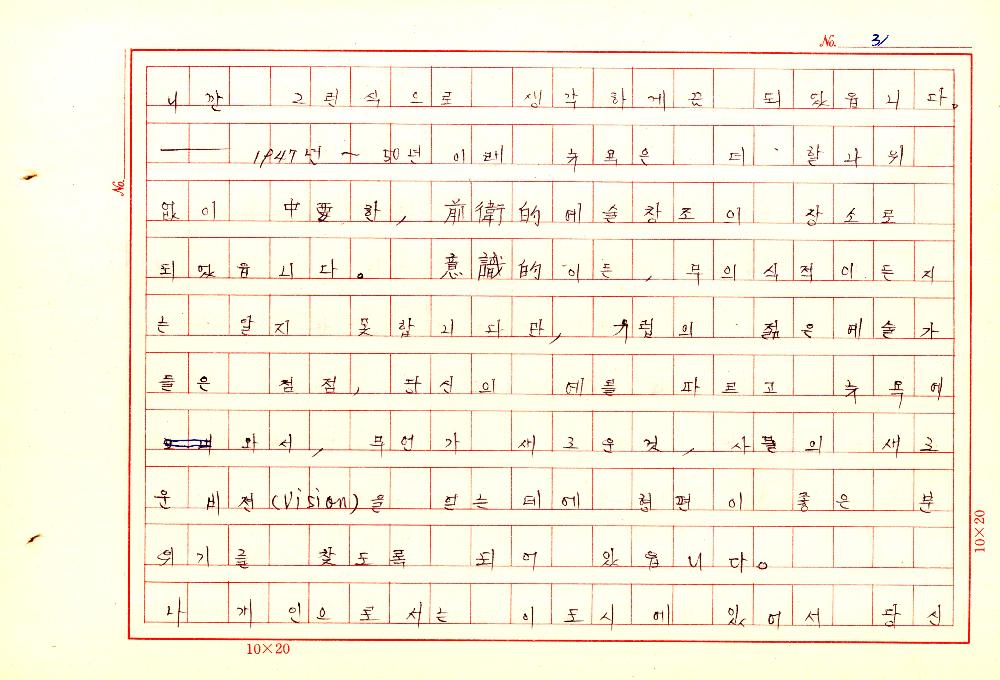 No. 31
니깐 그런식으로 생각하게끔 되었읍니다.
—— 1947년 ~ 50년 이래 뉴욕은 더 할나위
없이 中要한, 前衛的 예술창조의 장소로
되었읍니다. 意識的이든, 무의식적이든지
는 알지 못합니다만, 구럽의 젊은 예술가
들은 점점, 당신의 예를 따르고 뉴욕에
와서, 무언가 새로운것, 사물의 새로
운 비젼(Vision)을 얻는데에 형편이 좋은 분
위기를 찾도록 되어 있읍니다.
나 개인으로서는 이도시에 있어서 당신
No.
10×20
10×20